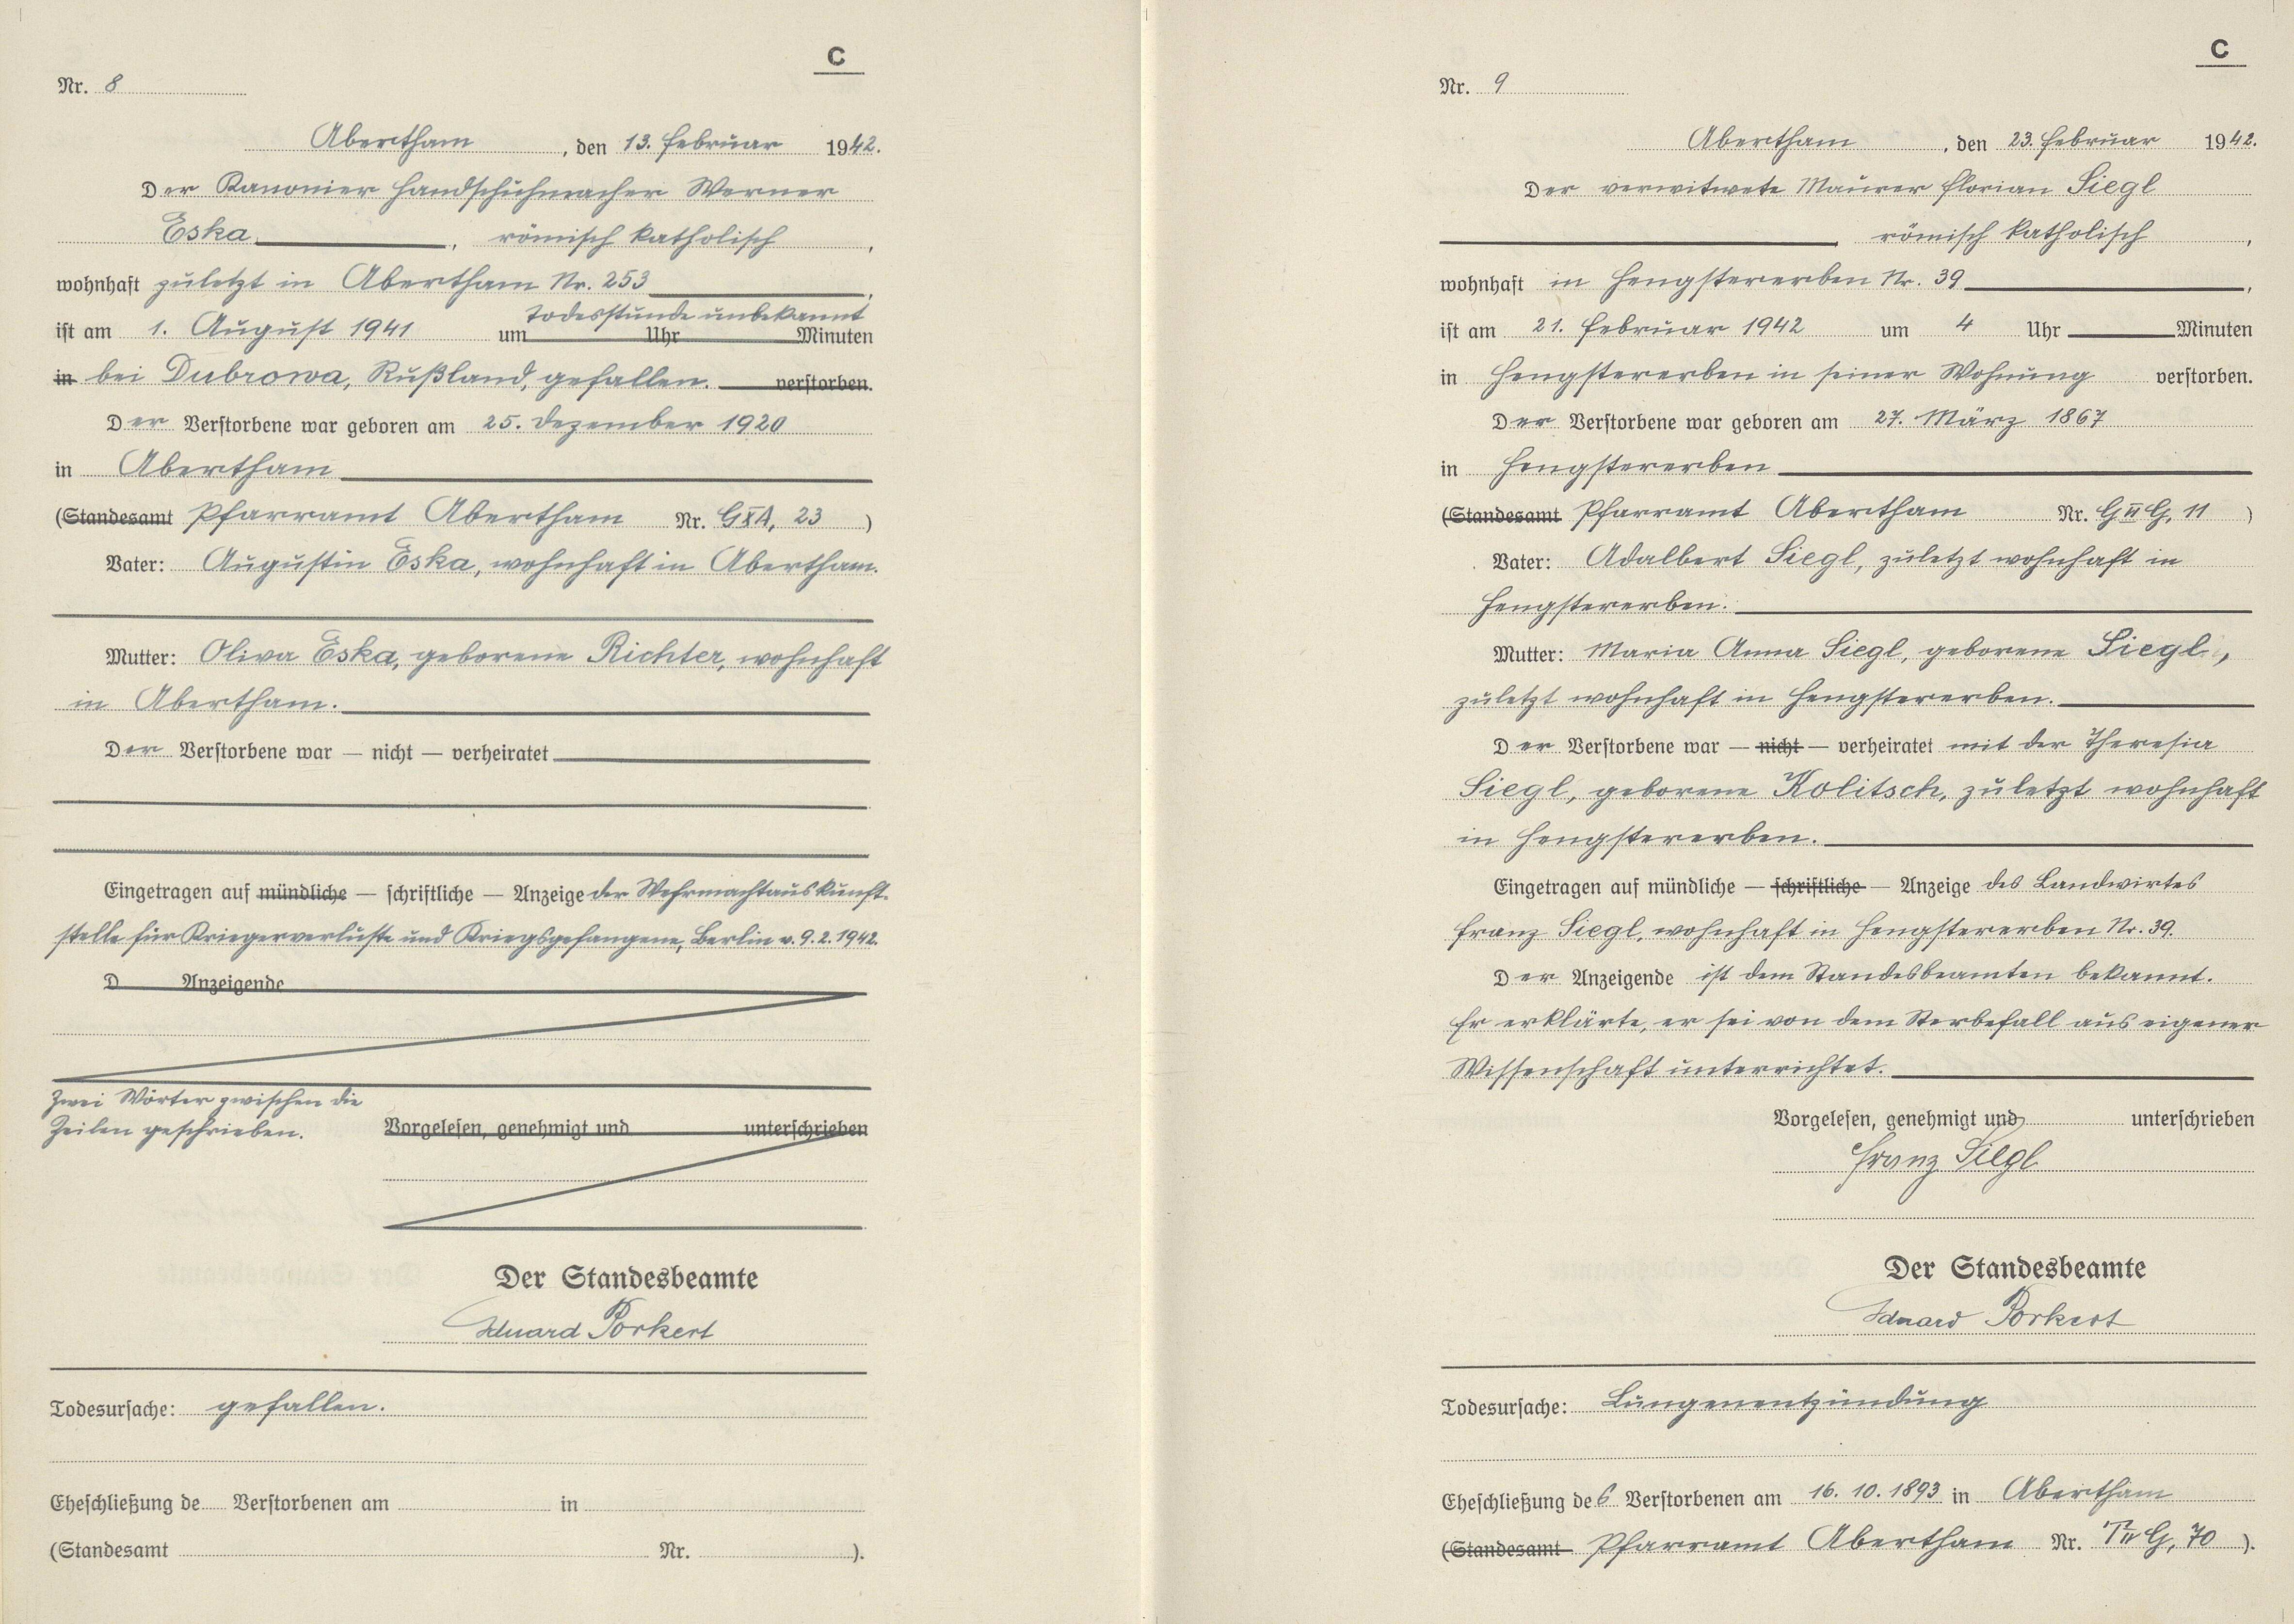 C
Nr. 8
Abertham, den 13. Februar 1942.
Der Kanonier Handschuhmacher Werner
Eska, römisch katholisch,
wohnhaft zuletzt in Abertham Nr. 253,
todesstunde unbekannt
ist am 1. August 1941 um Uhr Minuten
in bei Dubrowa, Rußland, gefallen. verstorben.
Der Verstorbene war geboren am 25. Dezember 1920
in Abertham
(Standesamt Pfarramt Abertham Nr. G X A, 23)
Vater: Augustin Eska, wohnhaft in Abertham.
Mutter: Oliva Eska, geborene Richter, wohnhaft
in Abertham.
Der Verstorbene war — nicht — verheiratet
Eingetragen auf mündliche — schriftliche — Anzeige der Wehrmachtauskunft-
stelle für Kriegerverluste und Kriegsgefangene, Berlin v. 9.2.1942.
D Anzeigende
Zwei Wörter zwischen die
Zeilen geschrieben.
Vorgelesen, genehmigt und unterschrieben
Der Standesbeamte
Eduard Porkert
Todesursache: gefallen.
Eheschließung de Verstorbenen am in
(Standesamt Nr. ).
C
Nr. 9
Abertham, den 23. Februar 1942.
Der verwitwete Maurer Florian Siegl
römisch katholisch,
wohnhaft in Hengstererben Nr. 39,
ist am 21. Februar 1942 um 4 Uhr Minuten
in Hengstererben in seiner Wohnung verstorben.
Der Verstorbene war geboren am 27. März 1867
in Hengstererben
(Standesamt Pfarramt Abertham Nr. G II G, 11)
Vater: Adalbert Siegl, zuletzt wohnhaft in
Hengstererben.
Mutter: Maria Anna Siegl, geborene Siegl,
zuletzt wohnhaft in Hengstererben.
Der Verstorbene war — nicht — verheiratet mit der Theresia
Siegl, geborene Kolitsch, zuletzt wohnhaft
in Hengstererben.
Eingetragen auf mündliche — schriftliche — Anzeige des Landwirtes
Franz Siegl, wohnhaft in Hengstererben Nr. 39.
Der Anzeigende ist dem Standesbeamten bekannt.
Er erklärte, er sei von dem Sterbefall aus eigener
Wissenschaft unterrichtet.
Vorgelesen, genehmigt und unterschrieben
Franz Siegl
Der Standesbeamte
Eduard Porkert
Todesursache: Lungenentzündung
Eheschließung des Verstorbenen am 16. 10. 1893 in Abertham
(Standesamt Pfarramt Abertham Nr. T II G, 70).